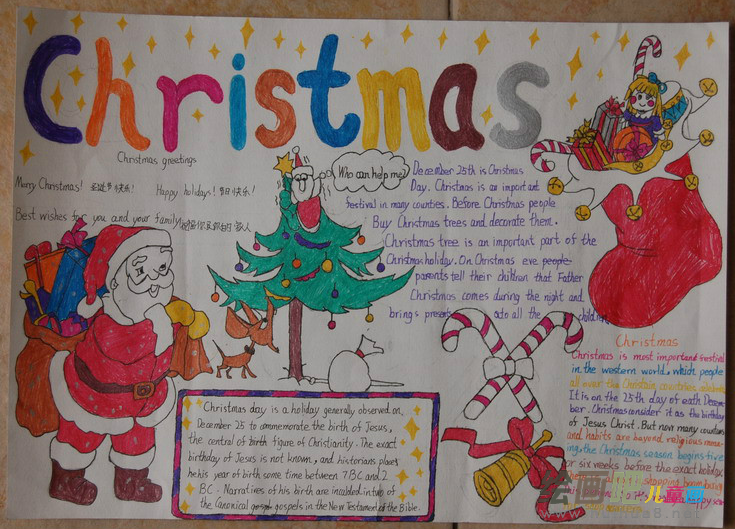 Christmas
Christmas greetings
Merry Christmas! 圣诞节快乐!
Happy holidays! 节日快乐!
Best wishes for you and your family
Who can help me?
December 25th is Christmas
Day. Christmas is an important
festival in many countries. Before Christmas people
Buy Christmas trees and decorate them.
Christmas tree is an important part of the
Christmas holiday. On Christmas eve people
parents tell their children that Father
Christmas comes during the night and
brings presents to all the children
Christmas day is a holiday generally observed on
December 25 to commemorate the birth of Jesus,
the central of birth figure of Christianity. The exact
birthday of Jesus is not known, and historians places
his year of birth some time between 7 BC and 2
BC. Narratives of his birth are included in two of
the Canonical gospels in the New Testament of the Bible.
Christmas
Christmas is most important festival
in the western world. which people
all over the Christain countries celebrate
It is on the 25th day of each Decem-
ber. Christmas consider it as the birthday
of Jesus Christ. But now many countries
and habits are beyond religious mean-
ing, the Christmas season begins five
or six weeks before the exact holiday
shopping
绘画 儿童网